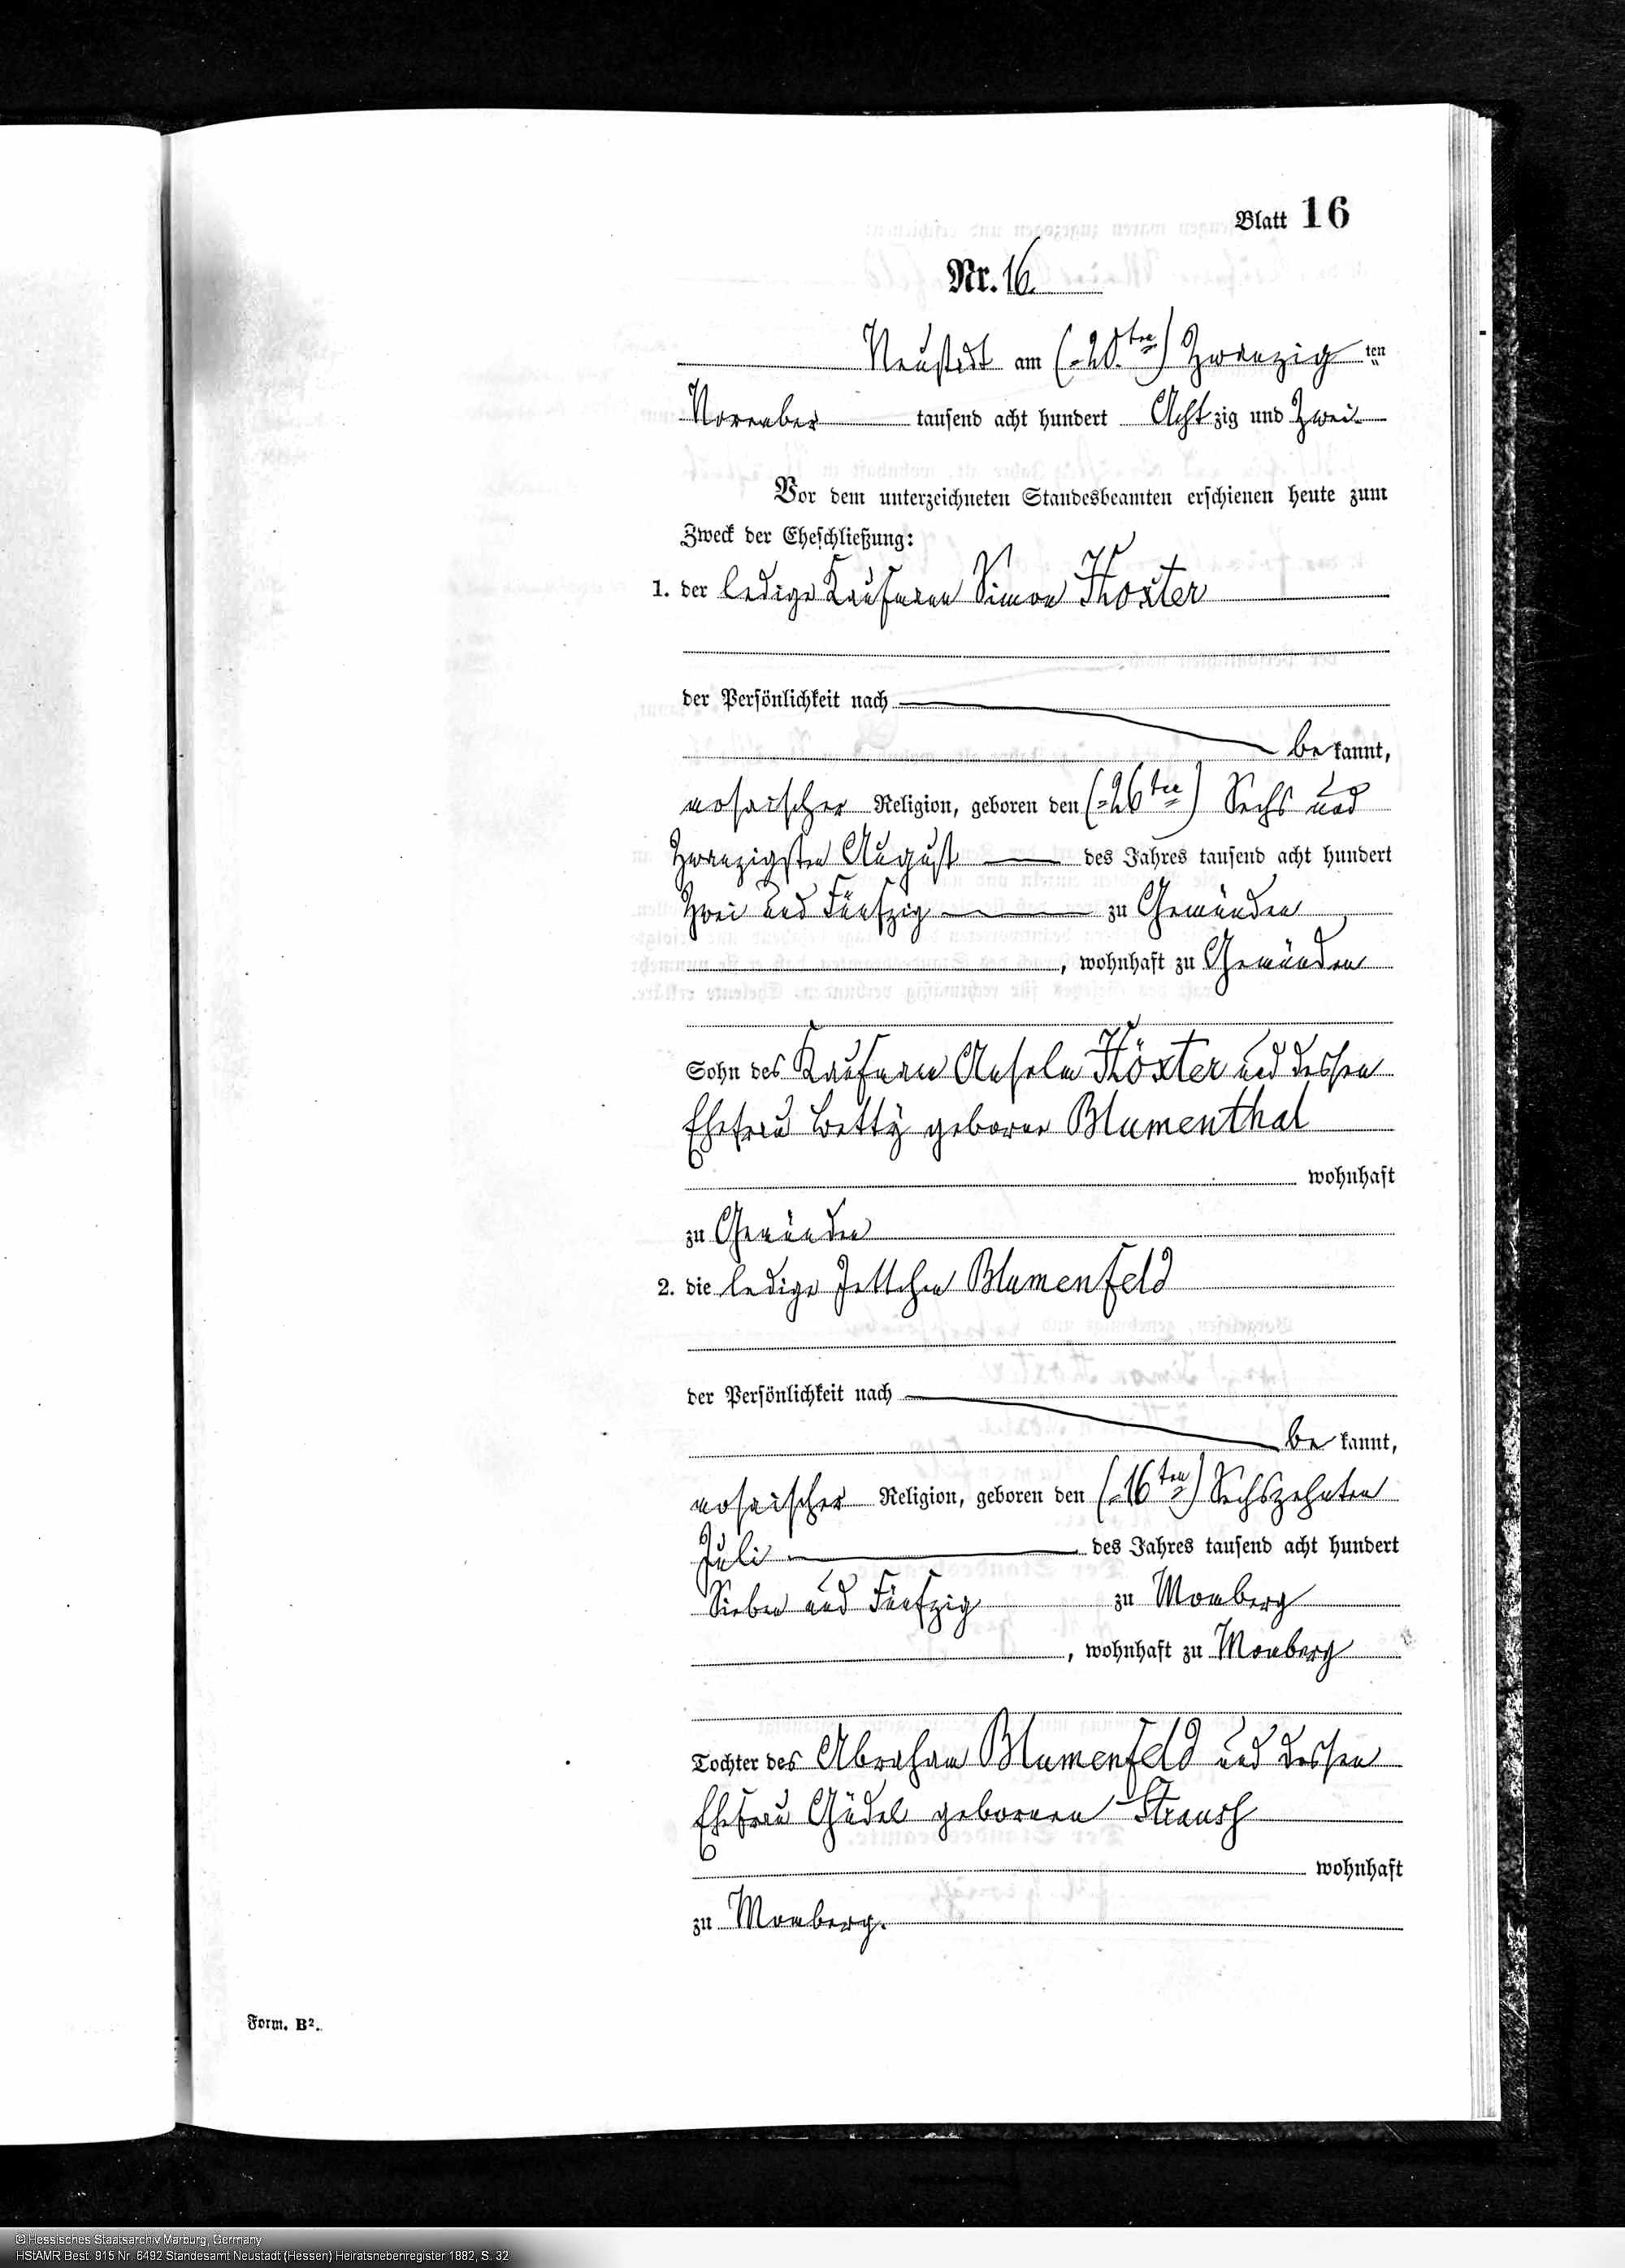 Blatt 16
Nr. 16.
Neustadt am (20.ten) Zwanzig ten
November tausend acht hundert Acht zig und Zwei
Vor dem unterzeichneten Standesbeamten erschienen heute zum
Zweck der Eheschließung:
1. der ledige Kaufmann Simon Höxter
der Persönlichkeit nach
be kannt,
mosaischer Religion, geboren den (26ten) Sechs und
Zwanzigsten August des Jahres tausend acht hundert
Zwei und Fünfzig zu Gemünden
, wohnhaft zu Gemünden
Sohn des Kaufmann Anselm Höxter und dessen
Ehefrau Betty geborne Blumenthal
wohnhaft
zu Gemünden
2. die ledige Jettchen Blumenfeld
der Persönlichkeit nach
be kannt,
mosaischer Religion, geboren den (16ten) Sechszehnten
Juli des Jahres tausend acht hundert
Sieben und Fünfzig zu Momberg
, wohnhaft zu Momberg
Tochter des Abraham Blumenfeld und dessen
Ehefrau Güdel gebornen Strauss
wohnhaft
zu Momberg.
Form. B².
© Hessisches Staatsarchiv Marburg, Germany
HStAMR Best. 915 Nr. 6492 Standesamt Neustadt (Hessen) Heiratsnebenregister 1882, S. 32